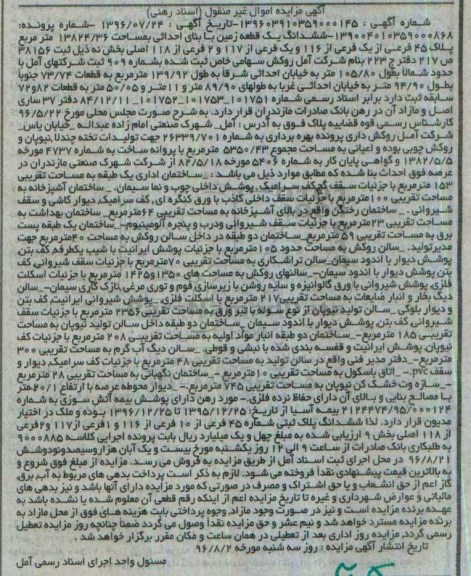 آگهی مزایده اموال غیر منقول (اسناد رهنی)
شماره آگهی : ۱۳۹۶۰۳۹۱۰۳۵۹۰۰۰۱۴۵ –تاریخ آگهی : ۱۳۹۶/۰۷/۲۴ –شماره پرونده:
۱۳۹۰۰۴۰۱۰۳۵۹۰۰۰۸۶۸–ششدانگ یک قطعه زمین با بنای احداثی بمساحت ۱۳۸۲۴/۳۶ متر مربع
پلاک ۴۵ فرعی از یک فرعی از ۱۱۶ و یک فرعی از ۱۱۷ و ۲ فرعی از ۱۱۸ اصلی بخش نه ذیل ثبت ۳۸۱۵۶
ص ۲۱۷ دفتر ج ۲۲۳ بنام شرکت آمل روکش سهامی خاص ثبت شده بشماره ۹۰۹ ثبت شرکتهای آمل با
حدود شمالا بطول ۱۰۵/۸۰ متر به خیابان احداثی شرقا به طول ۱۳۹/۹۲ مترمربع به قطعات ۷۳/۷۴ جنوبا
بطول ۹۴/۹۰ متر به خیابان احداثی غربا به طولهای ۸۹/۹۰ متر و ۱۱متر و ۵۰/۰۵ متر به قطعات ۸۲و۷۲
سابقه ثبت دارد برابر اسناد رسمی شماره ۱۰۱۷۵۱_۱۰۱۷۵۳_۱۰۱۷۵۲_ ۸۴/۱۲/۱۱ دفتر ۳۷ ساری
ص و مازاد آن در رهن بانک صادرات مازندران قرار دارد. به شرح صورت مجلس محلی مورخ ۹۶/۵/۲۲
کارشناس رسمی قوه قضاییه پلاک فـوق به آدرس : آمل_ شهرک صنعتی امام زاده عبدالله _خیابان یاس_
شرکت آمـل روکش داری پروانه بهره برداری به شماره ۲۶۳۳۹/۷۰۱ جهت تولیـدات تخته چندلا،نیوپان و
روکش چوبی بوده و اعیانی به مساحت مجموع ۵۳۵۰/۴۳ مترمربع با پروانه ساخت به شماره ۴۷۳۷ مورخه
۱۳۸۲/۵/۵ و گواهی پایان کار به شماره ۵۴۰۶ مورخه ۸۲/۵/۱۸ از شرکت شهرک صنعتی مازندران در
عرصه فوق احداث بنا شده که مطابق موارد ذیل می باشد : _ ساختمان اداری یک طبقه به مساحت تقریبی
۱۵۳ مترمربع با جزئیات سقف گچ،کف سرامیک ،پوشش داخلی چوب و نما سیمان. _ ساختمان آشپزخانه به
مساحت تقریبی ۱۰۰مترمربع با جزئیات سقف داخلی کاذب با ورق کنگره ای، کف سرامیک، دیوار کاشی و سقف
شیروانی . _ ساختمان رختکن واقع در بالای آشپزخانه به مساحت تقریبی ۶۴مترمربع_ ساختمان بهداشت به
مساحت تقریبی ۲۳مترمربع با جزئیات سقف شیروانی ودرب و پنجره آلومینیوم_ ساختمان یک طبقه پست
برق به مساحت تقریبی ۵۹ مترمربع_ ساختمان دو طبقه در داخل سالن روکش به مساحت ۴۰مترمربع جهت
مدیرتولید. _ سالن روکش به مساحت حدود ۱۰۵ مترمربع با جزئیات پوشش ایرانیت با شیب یکطرفه کف بتن
پوشش دیوار با اندود سیمان_ سالن تراشکاری به مساحت تقریبی ۷۰مترمربع با جزئیات سقف شیروانی کف
بتن پوشش دیوار با اندود سیمان-_ سالنهای روکش به مساحت های ۱۳۵۰و۱۴۲۵ مترمربع با جزئیات اسکلت
فلزی، پوشش شیروانی با ورق گالوانیزه و سایه روشن با زیرسازی فوم و توری مرغی،نازک کاری سیمان-_ سالن
دیگ بخار و انبار ضایعات به مساحت تقریبی ۲۱۷ مترمربع با اسکلت فلزی. _ پوشش شیروانی ایرانیت، کف بتن
و دیوار بلوکی _ سالن تولید نیوپان از نوع سوله با تیر ورق به مساحت تقریبی ۲۳۵۶ مترمربع با جزئیات سقف
شیروانی کف بتن، پوشش دیوار با اندود سیمان _ساختمان دو طبقه داخل سالن تولید نیوپان به مساحت
تقریبی ۱۸۵ مترمربع-_ ساختمان دو طبقه انبار مواد اولیه به مساحت تقریبی ۲۰۸ مترمربع با جزئیات کف
نیوپان پوشش ایرانیت و قفسه بندی شده با نبشی و قوطی. _ سالن دیگ آب گرم به مساحت تقریبی ۳۰۰
مترمربع-_ دفتر مدیر فنی واقع در سالن تولید به مساحت تقریبی ۴۸ مترمربع با جزئیات کف سرامیک، دیوار و
سقف pvc. _ اتاق باسکول به مساحت تقریبی ۱۰مترمربع –_ ساختمان نگهبانی به مساحت تقریبی ۲۸ مترمربع
–_ سازه وت خشک کن نیوپان به مساحت تقریبی ۷۴۵ مترمربع –_ دیوار محوطه عرصه با ارتفاع ۲/۰۱متر
با مصالح بنایی و بـالای آن دارای حفاظ نرده فلزی. _ مورد رهن دارای پوشش بیمه آتش سـوزی به شماره
۲۱۲۴۴۷۴/۹۵/۰۰۰۱۲۴ بیمه آسیا از تاریخ: ۱۳۹۵/۱۲/۲۵ تا ۱۳۹۶/۱۲/۲۵ بوده و ملک در اختیار
مدیون قرار دارد. لذا ششدانگ پلاک ثبتی شماره ۴۵ فرعی از ۱۰ فرعی از ۱۱۶ و ۱فرعی از۱۱۷ و۲فرعی
از ۱۱۸ اصلی بخش ۹ ارزیابی شده به مبلغ چهل و یک میلیارد ریال بابت پرونده اجرایی کلاسه ۹۰۰۰۸۸۵
به طلبکاری بانک صادرات از ساعت ۹ الی ۱۲ روز یکشنبه مورخ بیست و یک آبان هزار وسیصدونودوشش
۹۶/۸/۲۱ در محل اجرای ثبت اسناد آمل از طریق مزایده به فروش می رسد. مزایده از مبلغ فوق شروع و
به بالاترین قیمت پیشنهادی نقداً فروخته می شود. لازم به ذکر است پرداخت بدهی های مربوط به آب، برق،
گاز اعم از حق انشعاب و یا حق اشتراک و مصرف در صورتی که مورد مزایده دارای آنها باشد و نیز بدهی های
مالیاتی و عوارض شهرداری و غیره تا تاریخ مزایده اعم از اینکه رقم قطعی آن معلوم شده یا نشده باشد به
عهده برنده مزایده است و نیز در صورت وجود مازاد، وجوه پرداختی بابت هزینه های فوق از محل مازاد به
برنده مزایده مسترد خواهد شد و نیم عشر و حق مزایده نقداً وصول می گردد ضمناً چنانچه روز مزایده تعطیل
رسمی گردد، مزایده روز اداری بعد از تعطیلی در همان ساعت و مکان مقرر برگزار خواهد شد .
تاریخ انتشار آگهی مزایده : روز سه شنبه مورخه ۹۶/۸/۲
مسئول واحد اجرای اسناد رسمی آمل